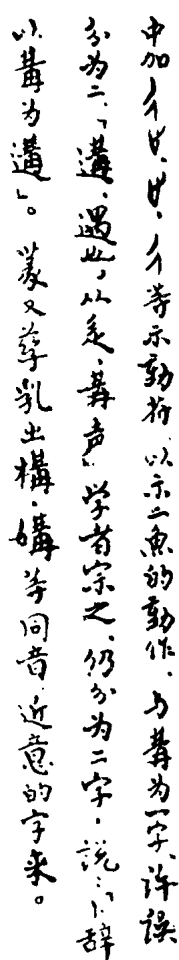 中加辵、止、彳等示動符，以示二魚的動作、与冓為一字、許誤
分為二、「遘，遇也，从辵，冓声」学者宗之、仍分為二字，説：「卜辞
以冓為遘」。冓又孳乳出構、媾等同音近意的字来。